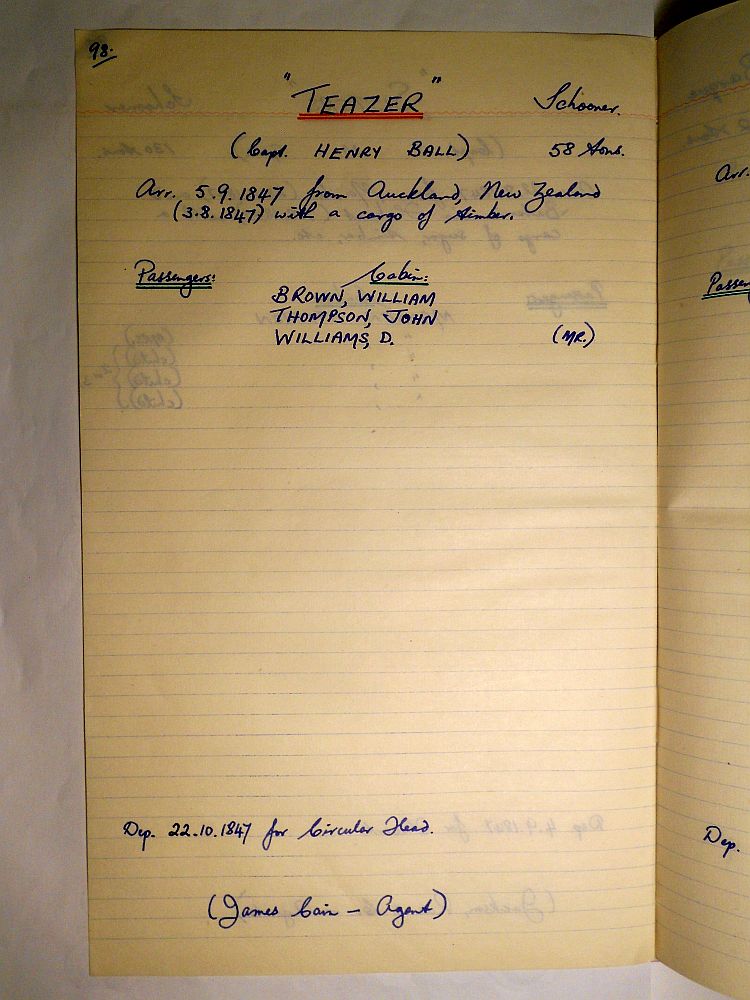 98.
"TEAZER" Schooner.
(Capt. HENRY BALL) 58 tons.
Arr. 5.9.1847 from Auckland, New Zealand
(3.8.1847) with a cargo of timber.
Passengers: Cabin:
BROWN, WILLIAM
THOMPSON, JOHN
WILLIAMS, D. (MR.)
Dep. 22.10.1847 for Circular Head.
(James Cain - Agent)
Arr.
Dep.